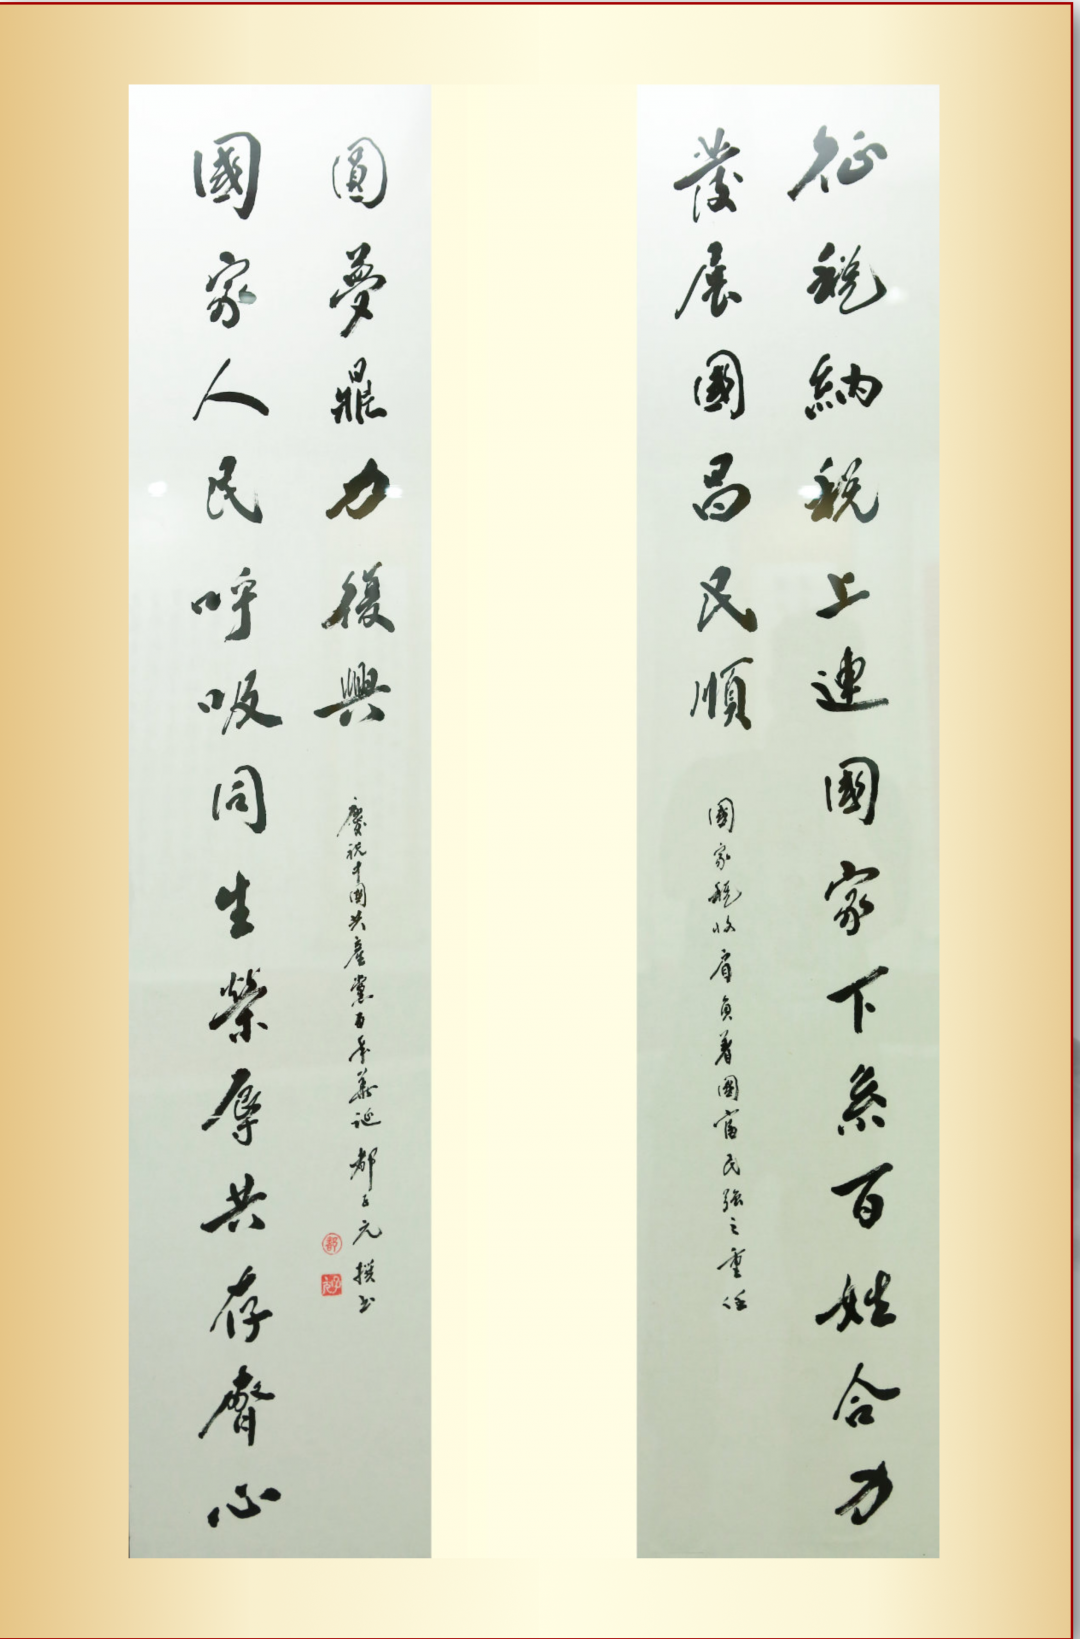 征税納税上連國家下系百姓合力
發展國昌民順
國家税收肩負着國富民強之重任
國家人民呼吸同生榮辱共存齊心
圓夢鼎力復興
慶祝中國共產黨百年華誕 都元撰書